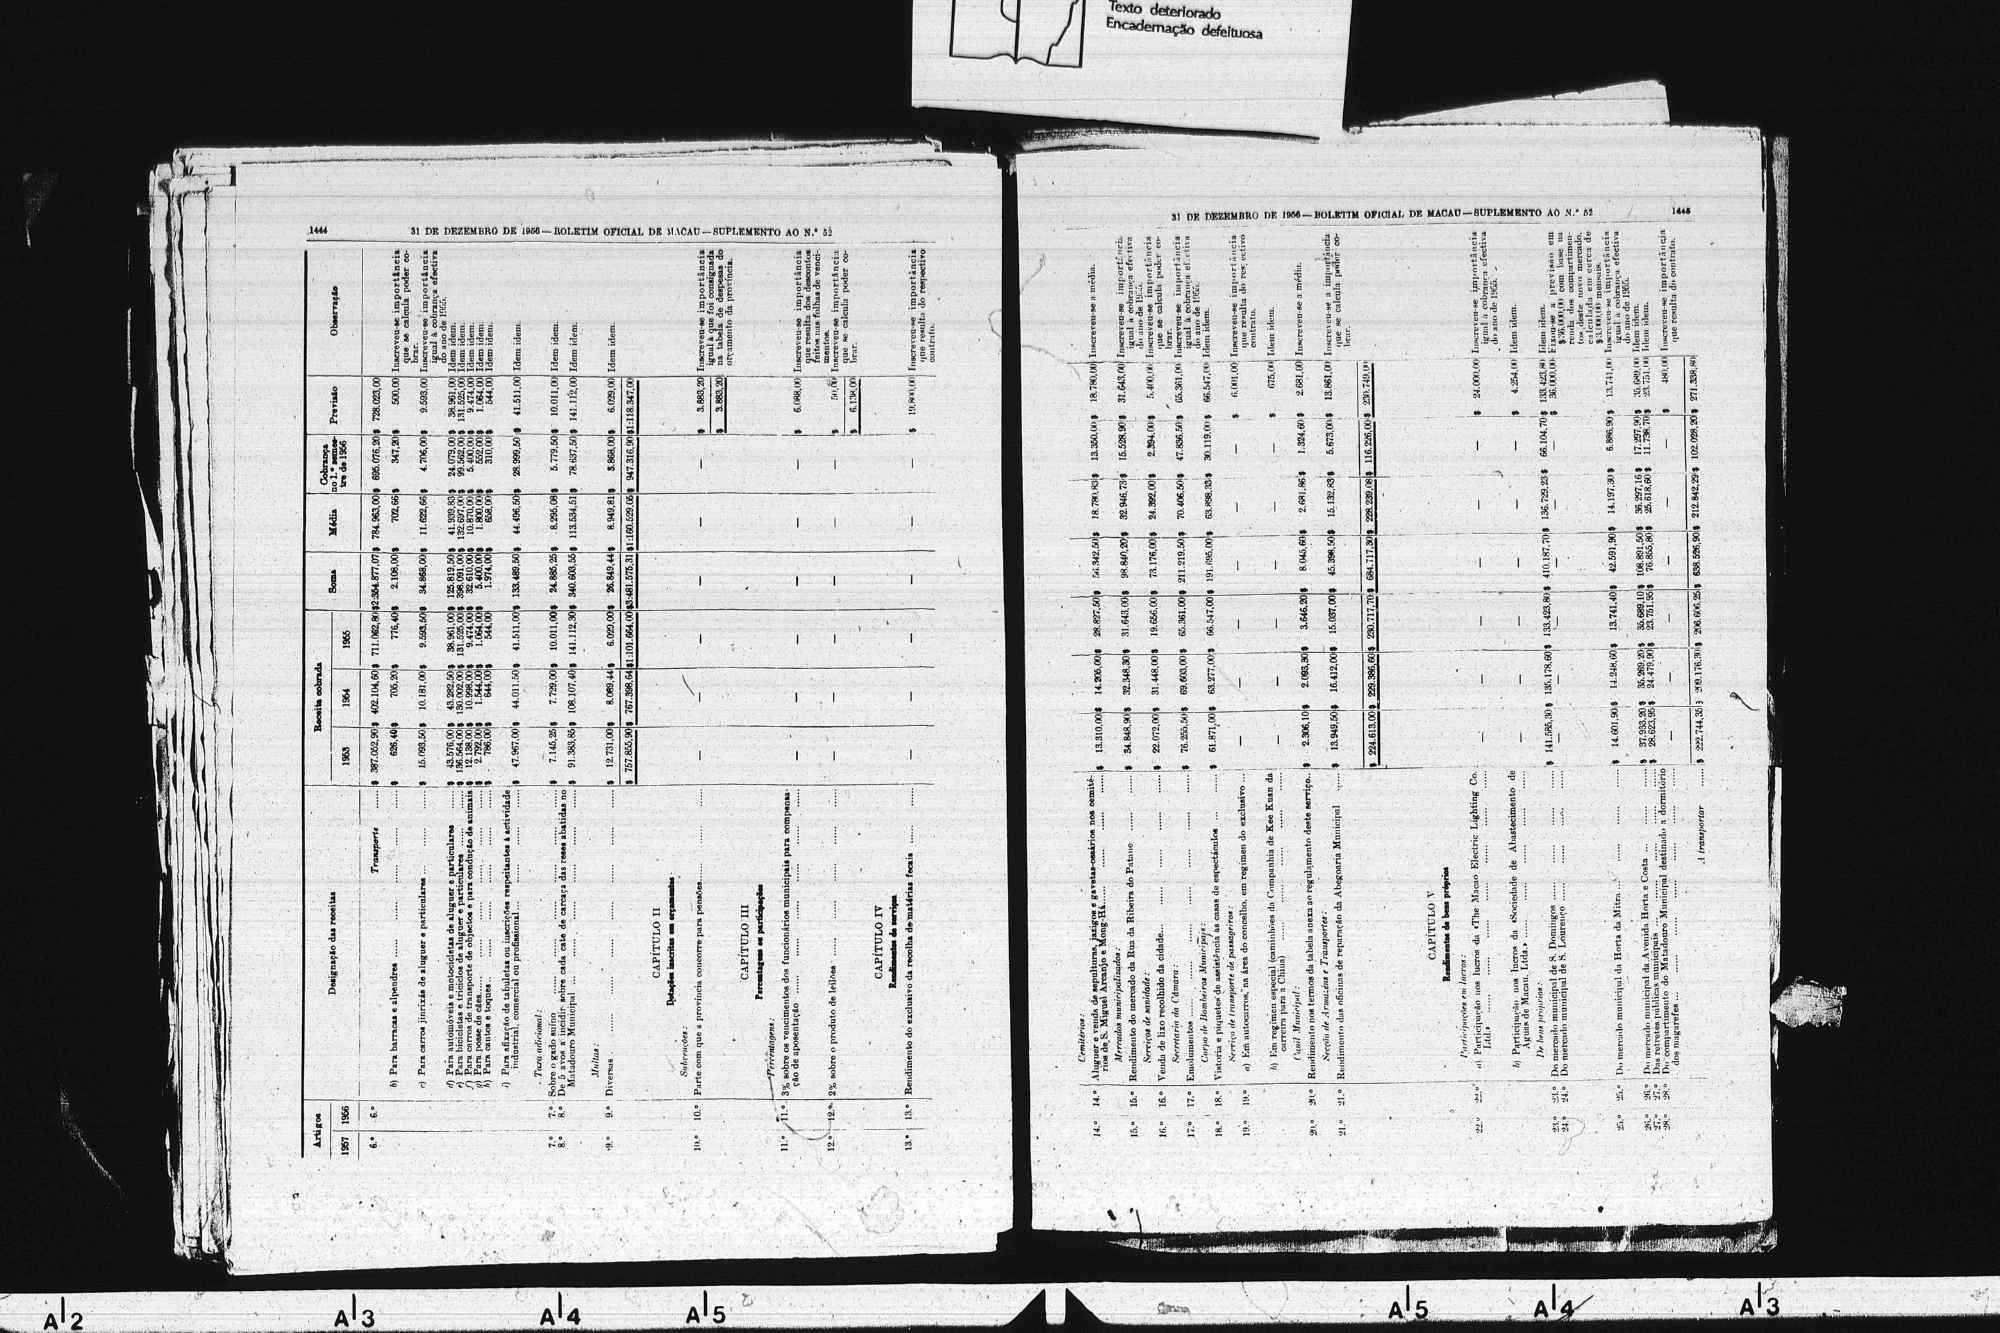 Texto deteriorado
Encadernação defeituosa
1444
31 DE DEZEMBRO DE 1956 — BOLETIM OFICIAL DE MACAU — SUPLEMENTO AO N.º 52
Artigos
1957 1956
Designação das receitas
Receita cobrada
1953 1954 1955
Soma
Média
Cobrança no 1.º semestre de 1956
Previsão
Observação
6.º 6.º Transporte ...... $ 387.052,90 $ 402.104,60 $ 711.062,80 $ 2:354.877,07 $ 784.963,00 $ 695.076,20 $ 728.023,00
b) Para barracas e alpendres ...... $ 626,40 $ 705,20 $ 776,40 $ 2.108,00 $ 702,66 $ 347,20 $ 500,00 Inscreveu-se importância
que se calcula poder co-
brar.
c) Para carros jinrixás de aluguer e particulares ...... $ 15.093,50 $ 10.181,00 $ 9.593,50 $ 34.868,00 $ 11.622,66 $ 4.706,00 $ 9.593,00 Inscreveu-se importância
igual à cobrança efectiva
do ano de 1955.
d) Para automóveis e motocicletas de aluguer e particulares $ 43.576,00 $ 43.282,50 $ 38.961,00 $ 125.819,50 $ 41.939,83 $ 24.079,00 $ 38.961,00 Idem idem.
e) Para bicicletas e triciclos de aluguer e particulares ...... $ 136.564,00 $ 130.002,00 $ 131.525,00 $ 398.091,00 $ 132.697,00 $ 99.562,00 $ 131.525,00 Idem idem.
f) Para carros de transporte de objectos e para condução de animais $ 12.138,00 $ 10.998,00 $ 9.474,00 $ 32.610,00 $ 10.870,00 $ 5.400,00 $ 9.474,00 Idem idem.
g) Para posse de cães ...... $ 2.792,00 $ 1.544,00 $ 1.064,00 $ 5.400,00 $ 1.800,00 $ 552,00 $ 1.064,00 Idem idem.
h) Para cantos e toques ...... $ 786,00 $ 644,00 $ 544,00 $ 1.974,00 $ 658,00 $ 310,00 $ 544,00 Idem idem.
i) Para afixação de tabuletas ou inscrições respeitantes à actividade
industrial, comercial ou profissional ...... $ 47.967,00 $ 44.011,50 $ 41.511,00 $ 133.489,50 $ 44.496,50 $ 28.999,50 $ 41.511,00 Idem idem.
Taxa adicional:
7.º 7.º Sobre o gado suíno ...... $ 7.145,25 $ 7.729,00 $ 10.011,00 $ 24.885,25 $ 8.295,08 $ 5.779,50 $ 10.011,00 Idem idem.
8.º 8.º De 5 avos a incidir sobre cada cate de carcaça das reses abatidas no
Matadouro Municipal ...... $ 91.383,85 $ 108.107,40 $ 141.112,30 $ 340.603,55 $ 113.534,51 $ 78.637,50 $ 141.112,00 Idem idem.
Multas:
9.º 9.º Diversas ...... $ 12.731,00 $ 8.089,44 $ 6.029,00 $ 26.849,44 $ 8.949,81 $ 3.868,00 $ 6.029,00 Idem idem.
$ 757.855,90 $ 767.398,64 $ 1:101.664,00 $ 3:481.575,31 $ 1:160.529,05 $ 947.316,90 $ 1:118.347,00
CAPÍTULO II
Dotações inscritas em orçamentos
Subvenções:
10.º 10.º Parte com que a província concorre para pensões ...... — — — — — — $ 3.883,20 Inscreveu-se importância
igual à que foi consignada
na tabela de despesas do
orçamento da província.
$ 3.883,20
CAPÍTULO III
Percentagens ou participações
Percentagens:
11.º 11.º 3% sobre os vencimentos dos funcionários municipais para compensa-
ção de aposentação ...... — — — — — — $ 6.088,00 Inscreveu-se importância
que resulta dos descontos
feitos nas folhas de venci-
mentos.
12.º 12.º 2% sobre o produto de leilões ...... — — — — — — $ 50,00 Inscreveu-se importância
que se calcula poder co-
brar.
$ 6.138,00
CAPÍTULO IV
Rendimentos de serviços
13.º 13.º Rendimento do exclusivo da recolha de matérias fecais ...... — — — — — — $ 19.800,00 Inscreveu-se importância
que resulta do respectivo
contrato.
31 DE DEZEMBRO DE 1956 — BOLETIM OFICIAL DE MACAU — SUPLEMENTO AO N.º 52
1445
Cemitérios:
14.º 14.º Aluguer e venda de sepulturas, jazigos e gavetas-ossários nos cemité-
rios de S. Miguel Arcanjo e Mong-Há ...... $ 13.310,00 $ 14.205,00 $ 28.827,50 $ 56.342,50 $ 18.780,83 $ 13.350,00 $ 18.780,00 Inscreveu-se a média.
Mercados municipalizados:
15.º 15.º Rendimento do mercado da Rua da Ribeira do Patane ...... $ 34.848,90 $ 32.348,30 $ 31.643,00 $ 98.840,20 $ 32.946,73 $ 15.528,90 $ 31.643,00 Inscreveu-se importância
igual à cobrança efectiva
do ano de 1955.
Serviços de sanidade:
16.º 16.º Venda de lixo recolhido da cidade ...... $ 22.072,00 $ 31.448,00 $ 19.656,00 $ 73.176,00 $ 24.392,00 $ 2.394,00 $ 5.400,00 Inscreveu-se importância
que se calcula poder co-
brar.
Secretaria da Câmara:
17.º 17.º Emolumentos ...... $ 76.255,50 $ 69.603,00 $ 65.361,00 $ 211.219,50 $ 70.406,50 $ 47.836,50 $ 65.361,00 Inscreveu-se importância
igual à cobrança efectiva
do ano de 1955.
Corpo de Bombeiros Municipais:
18.º 18.º Vistoria e piquetes de assistência às casas de espectáculos ... $ 61.871,00 $ 63.277,00 $ 66.547,00 $ 191.695,00 $ 63.898,33 $ 30.119,00 $ 66.547,00 Idem idem.
Serviço de transporte de passageiros:
19.º 19.º a) Em autocarros, na área do concelho, em regímen do exclusivo ... — — — — — — $ 6.001,00 Inscreveu-se importância
que resulta do respectivo
contrato.
b) Em regímen especial (caminhões da Companhia de Kee Kuan da
carreira para a China) ...... — — — — — — $ 675,00 Idem idem.
Canil Municipal:
20.º 20.º Rendimento nos termos da tabela anexa ao regulamento deste serviço... $ 2.306,10 $ 2.093,30 $ 3.646,20 $ 8.045,60 $ 2.681,86 $ 1.324,60 $ 2.681,00 Inscreveu-se a média.
Secção de Armazéns e Transportes:
21.º 21.º Rendimento das oficinas de reparação da Abegoaria Municipal ...... $ 13.949,50 $ 16.412,00 $ 15.037,00 $ 45.398,50 $ 15.132,83 $ 5.673,00 $ 13.861,00 Inscreveu-se a importância
que se calcula poder co-
brar.
$ 224.613,00 $ 229.386,60 $ 230.717,70 $ 684.717,30 $ 228.239,08 $ 116.226,00 $ 230.749,00
CAPÍTULO V
Rendimentos de bens próprios
Participações em lucros:
22.º 22.º a) Participação nos lucros da «The Macao Electric Lighting Co.
Ltd.» ...... — — — — — — $ 24.000,00 Inscreveu-se importância
igual à cobrança efectiva
do ano de 1955.
b) Participação nos lucros da «Sociedade de Abastecimento de
Águas de Macau, Ltda.» ...... — — — — — — $ 4.254,00 Idem idem.
De bens próprios:
23.º 23.º Do mercado municipal de S. Domingos ...... $ 141.585,30 $ 135.178,60 $ 133.423,80 $ 410.187,70 $ 136.729,23 $ 66.104,70 $ 133.423,80 Idem idem.
24.º 24.º Do mercado municipal de S. Lourenço ...... — — — — — — $ 36.000,00 Fixou-se a previsão em
$36.000,00 com base na
renda dos compartimen-
tos deste novo mercado,
calculada em cerca de
$3.000,00 mensais.
25.º 25.º Do mercado municipal da Horta da Mitra ...... $ 14.601,90 $ 14.248,60 $ 13.741,40 $ 42.591,90 $ 14.197,30 $ 6.886,90 $ 13.741,00 Inscreveu-se importância
igual à cobrança efectiva
do ano de 1955.
26.º 26.º Do mercado municipal da Avenida Horta e Costa ... $ 37.933,20 $ 35.269,20 $ 35.689,10 $ 108.891,50 $ 36.297,16 $ 17.297,90 $ 35.689,00 Idem idem.
27.º 27.º Das retretes públicas municipais ...... $ 28.623,95 $ 24.479,90 $ 23.751,95 $ 76.855,80 $ 25.618,60 $ 11.738,70 $ 23.751,00 Idem idem.
28.º 28.º Do compartimento do Matadouro Municipal destinado a dormitório
dos magarefes ... — — — — — — $ 480,00 Inscreveu-se importância
que resulta do contrato.
A transportar ...... $ 222.744,35 $ 209.176,30 $ 206.606,25 $ 638.526,90 $ 212.842,29 $ 102.028,20 $ 271.338,80
A2 A3 A4 A5 A5 A4 A3